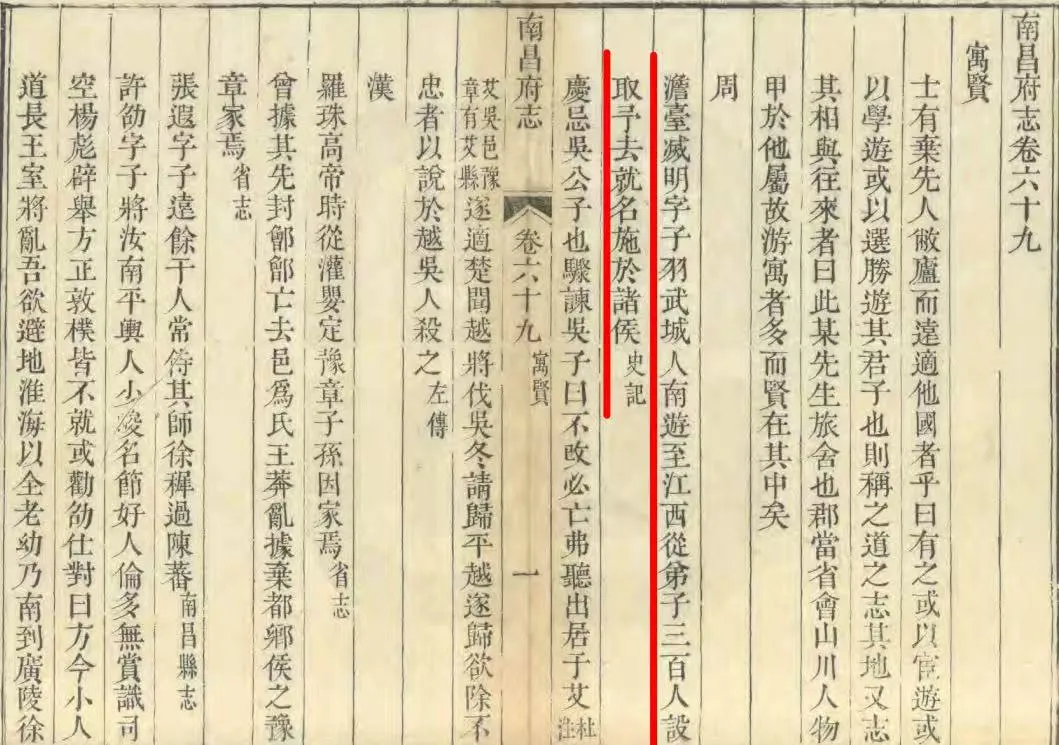 南昌府志卷六十九
寓賢
士有棄先人敝廬而遠適他國者乎曰有之或以宦遊或
以學遊或以選勝遊其君子也則稱之道之志其地又志
其相與往來者曰此某先生旅舍也郡當省會山川人物
甲於他屬故游寓者多而賢在其中矣
周
澹臺滅明字子羽武城人南遊至江西從弟子三百人設
取予去就名施於諸侯史記
慶忌吳公子也驟諫吳子曰不改必亡弗聽出居于艾杜注
南昌府志 卷六十九 寓賢 一
艾吳邑豫章有艾縣遂適楚聞越將伐吳冬請歸平越遂歸欲除不
忠者以說於越吳人殺之左傳
漢
羅珠高帝時從灌嬰定豫章子孫因家焉省志
曾據其先封鄫鄫亡去邑爲氏王莽亂據棄都鄉侯之豫
章家焉省志
張遐字子遠餘干人常侍其師徐穉過陳蕃南昌縣志
許劭字子將汝南平輿人少峻名節好人倫多無賞識司
空楊彪辟舉方正敦樸皆不就或勸劭仕對曰方今小人
道長王室將亂吾欲避地淮海以全老幼乃南到廣陵徐